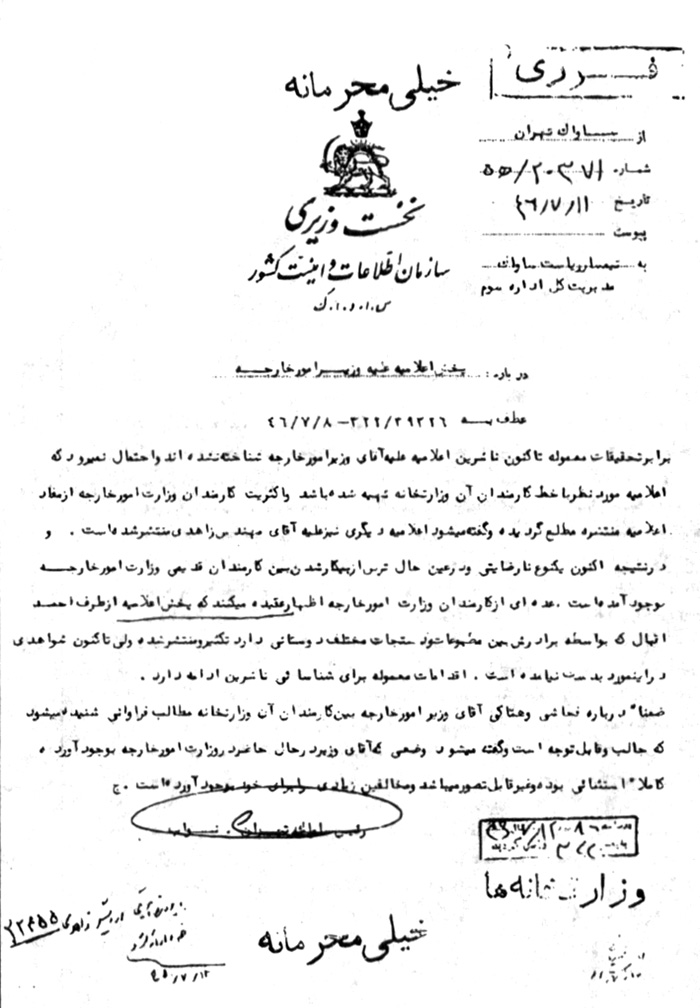 فوری
خیلی محرمانه
از ساواك تهران
شماره ۲۰۳۷۱/۵ﻫ
تاریخ ۴۶/۷/۱۱
پیوست
به تیمسار ریاست ساواك
مدیریت کل اداره سوم
نخست وزیری
سازمان اطلاعات و امنیت کشور
س.ا.و.ا.ک
درباره: پخش اعلامیه علیه وزیر امور خارجه
عطف به ۳۲۲/۳۹۳۲۶-۴۶/۷/۸
برابر تحقیقات معموله تاکنون ناشرین اعلامیه علیه آقای وزیر امور خارجه شناخته نشده اند و احتمال نمیرود که
اعلامیه مورد نظر با خط کارمندان آن وزارتخانه تهیه شده باشد و اکثریت کارمندان وزارت امور خارجه از مفاد
اعلامیه منتشره مطلع گردیده و گفته میشود اعلامیه دیگری نیز علیه آقای مهندس زاهدی منتشر شده است . و
در نتیجه اکنون یکنوع نارضایتی و در عین حال ترس از بیکار شدن بین کارمندان قدیمی وزارت امور خارجه
بوجود آمده است . عده ای از کارمندان وزارت امور خارجه اظهار عقیده میکنند که پخش اعلامیه از طرف احمد
اقبال که بواسطه برادرش بین مطبوعات و دستجات مختلف دوستانی دارد تکثیر و منتشر شده ولی تاکنون شواهدی
در اینمورد بدست نیامده است . اقدامات معموله برای شناسائی ناشرین ادامه دارد .
ضمناً درباره فحاشی و هتاکی آقای وزیر امور خارجه بین کارمندان آن وزارتخانه مطالب فراوانی شنیده میشود
که جالب و قابل توجه است و گفته میشود وضعی که آقای وزیر در حال حاضر در وزارت امور خارجه بوجود آورده
کاملاً استثنائی بوده و غیر قابل تصور میباشد و مخالفین زیادی را برای خود بوجود آورده است . ج
رئیس ساواك تهران . نواب
وزارتخانه ها
خیلی محرمانه
اردشیر زاهدی ۲۲۴۵۵